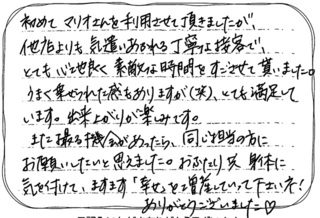 初めて マリオさんを利用させて頂きましたが、
他店よりも 気遣いあふれる丁寧な接客で、
とても 心地良く 素敵な時間を すごさせて 貰いました。
うまく乗せられた感もありますが(笑)、とても満足して
います。出来上がりが楽しみです。
また撮る機会があったら、同じ担当の方に
お願いしたいと思えました。おふたり共、身体に
気を付けて、ますます「幸せ」を増産していって下さいネ!
ありがとうございました♡